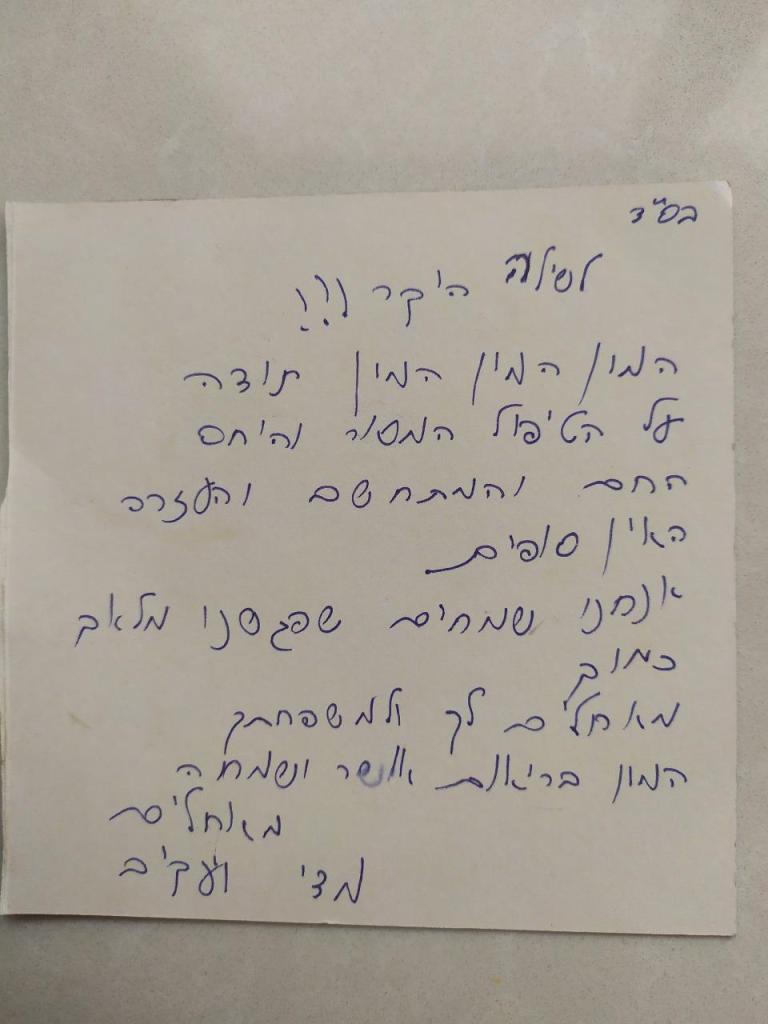 בס"ד
לשילה היקר !!!
המון המון המון תודה
על הטיפול המסור והיחס
החם והמתחשב והעזרה
האין סופית
אנחנו שמחים שפגשנו מלאך
כמוך
מאחלים לך ולמשפחתך
המון בריאות אושר ושמחה
מאחלים
ועקיב